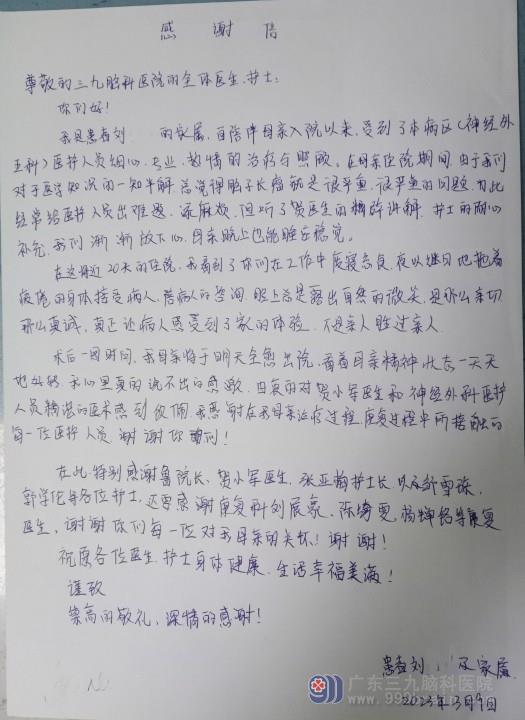 感谢信
尊敬的三九脑科医院的全体医生、护士：
你们好！
我是患者刘 的家属，自陪伴母亲入院以来，受到了本病区（神经外
五科）医护人员细心、专业、热情的治疗与照顾。在母亲住院期间，由于我们
对于医学知识的一知半解总觉得脑子长瘤就是很严重、很严重的问题，为此
经常给医护人员出难题、添麻烦，但听了贺医生的精辟讲解，护士的耐心
补充，我们渐渐放下心，母亲晚上也能睡安稳觉。
在这将近20天的住院，我看到了你们在工作中废寝忘食，夜以继日地拖着
疲倦的身体接受病人、替病人的咨询，脸上总是露出自然的微笑，是那么亲切
那么真诚，真正让病人感受到了家的体验，不是亲人胜过亲人。
术后一周时间，我母亲将于明天全愈出院，看着母亲精神状态一天天
地好转，我心里真的说不出的感激，由衷的对贺小军医生和神经外科医护
人员精湛的医术感到钦佩，我感谢在我母亲治疗过程、康复过程中所接触的
每一位医护人员，谢谢你们！
在此特别感谢鲁院长、贺小军医生，张亚梅护士长，以及邹雪
郭学伦等各位护士，还要感谢康复科刘展豪、陈绮雯、杨蝉铭等康复
医生，谢谢你们每一位对我母亲的关怀！谢谢！
祝愿各位医生、护士身体健康、生活幸福美满！
谨致
崇高的敬礼，深情的感谢！
患者刘 及家属
2023年3月9日
广东三九脑科医院